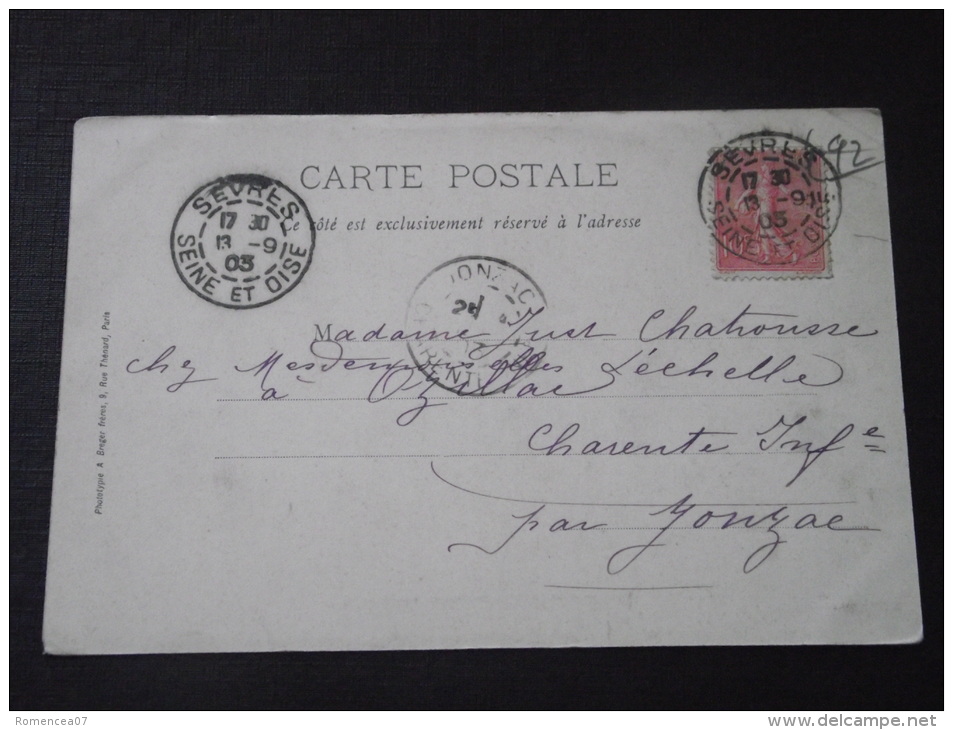 CARTE POSTALE
Ce côté est exclusivement réservé à l'adresse
SÈVRES
17 30
13 -9
03
SEINE ET OISE
SÈVRES
17 30
13 -9
03
SEINE ET OISE
92
JONZAC
Madame Just Chatrousse
chez Mesdemoiselles Léchelle
à Ozillac
Charente Infe
par Jonzac
Phototypie A Berger frères, 9, Rue Thénard, Paris
Romencea07
http://www.delcampe.net